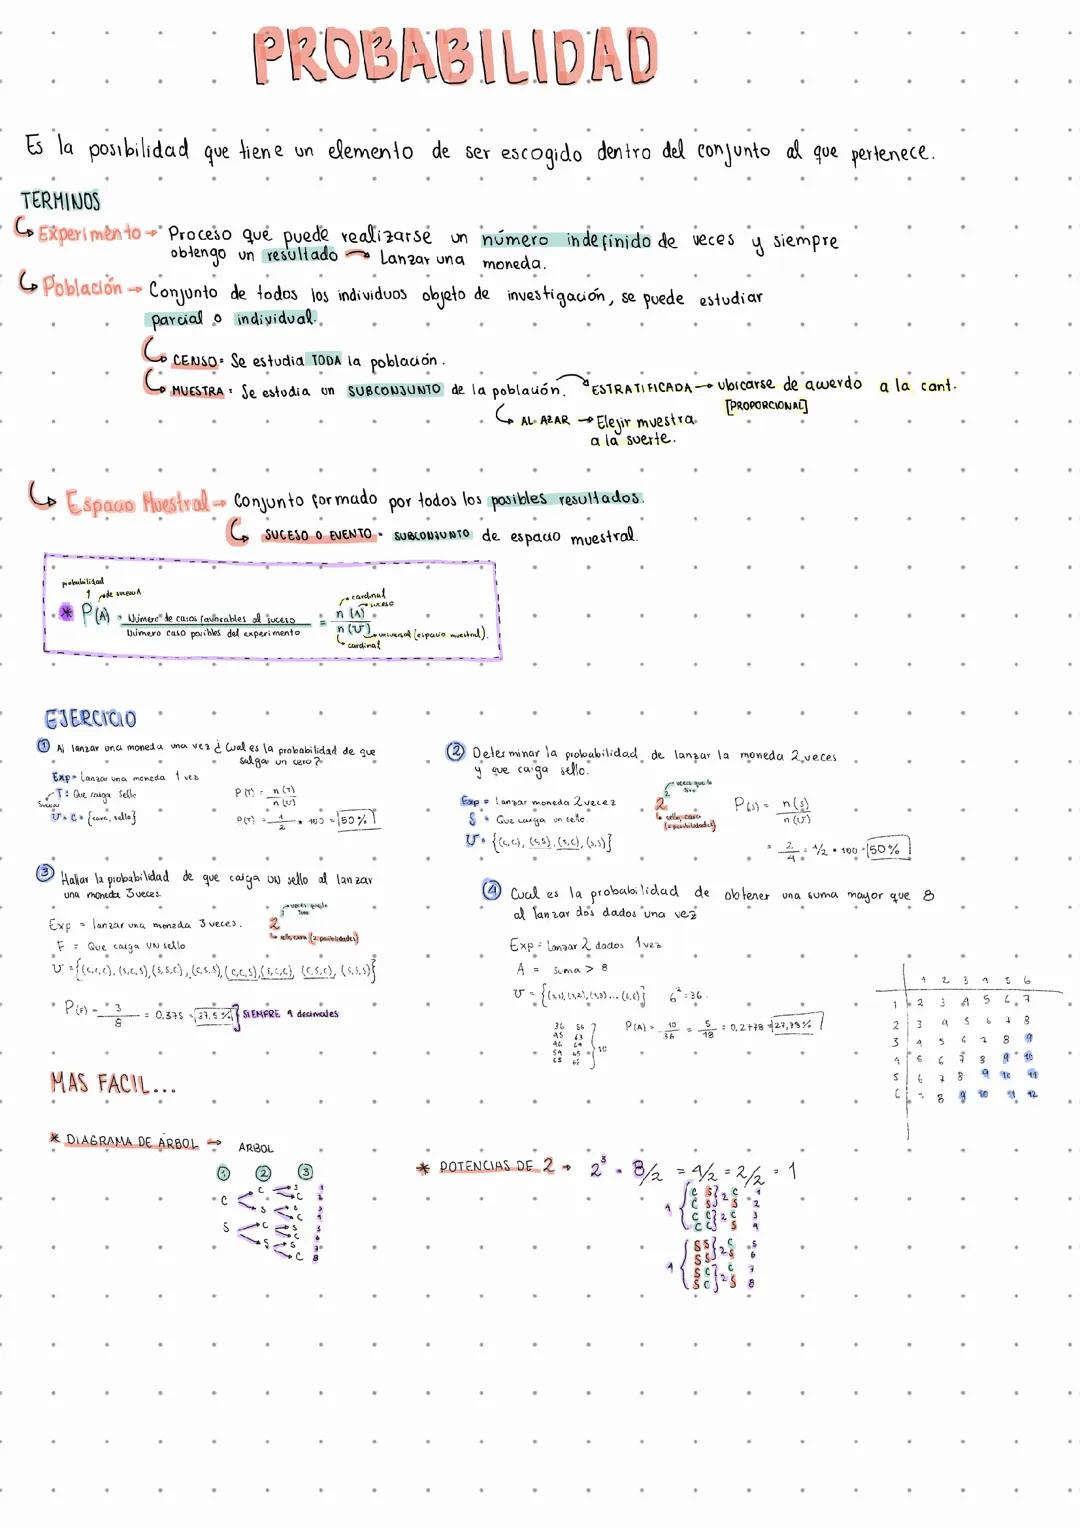 PROBABILIDAD
Es la posibilidad que tiene un elemento de ser escogido dentro del conjunto al que pertenece.
TERMINOS
Experimento → Proceso que puede realizarse un número indefinido de veces y siempre
obtengo un resultado → Lanzar una moneda.
Población → Conjunto de todos los individuos objeto de investigación, se puede estudiar
parcial o individual.
CENSO = Se estudia TODA la población.
MUESTRA = Se estudia un SUBCONJUNTO de la población. ESTRATIFICADA → ubicarse de acuerdo a la cant.
[PROPORCIONAL]
AL AZAR → Elejir muestra
a la suerte.
Espacio Muestral → Conjunto formado por todos los posibles resultados.
SUCESO O EVENTO = SUBCONJUNTO de espacio muestral.
probabilidad
de suceso A
* P(A) = Número de casos favorables al suceso / Número caso posibles del experimento = n(A) / n(U)
cardinal
suceso
universal (espacio muestral).
cardinal
EJERCICIO
① Al lanzar una moneda una vez ¿ Cual es la probabilidad de que
salga un cero?
Exp = Lanzar una moneda 1 vez
T: Que caiga Sello
Suceso
U = C = {cara, sello}
P(T) = n(T) / n(U)
P(T) = 1/2 * 100 = 50%
② Determinar la probabilidad de lanzar la moneda 2 veces
y que caiga sello.
Exp = Lanzar moneda 2 vecez
S = Que caiga un sello
U = {(c,c), (c,s), (s,c), (s,s)}
2² veces que lo tiro
sello, cara
(2 posibilidades)
P(s) = n(s) / n(U)
= 2/4 = 1/2 * 100 = 50%
③ Hallar la probabilidad de que caiga UN sello al lanzar
una moneda 3 veces.
Exp = lanzar una moneda 3 veces.
F = Que caiga UN sello
2³ veces que lo tiro
sello, cara (2 posibilidades)
U = {(c,c,c), (s,c,s), (s,s,c), (c,s,s), (c,c,s), (s,c,c), (c,s,c), (s,s,s)}
P(F) = 3/8 = 0.375 = 37.5% } SIEMPRE 4 decimales
④ Cual es la probabilidad de obtener una suma mayor que 8
al lanzar dos dados una vez
Exp = Lanzar 2 dados 1 vez
A = Suma > 8
U = {(1,1), (1,2), (1,3)... (6,6)} 6² = 36
36 56
45 63
46 64
54 65
55 66
} 10
P(A) = 10/36 = 5/18 = 0,2778 = 27,78%
1 2 3 4 5 6
1 2 3 4 5 6 7
2 3 4 5 6 7 8
3 4 5 6 7 8 9
4 5 6 7 8 9 10
5 6 7 8 9 10 11
6 7 8 9 10 11 12
MAS FACIL...
* DIAGRAMA DE ARBOL → ARBOL
① ② ③
C C S 1
C 2
S S 3
C 4
S C S 5
C 6
S S 7
C 8
* POTENCIAS DE 2 → 2³ = 8/2 = 4/2 = 2/2 = 1
4 { C S } 2 C 1
C S S 2
C C } 2 C 3
C C S 4
4 { S S } 2 C 5
S S S 6
S C } 2 C 7
S C S 8